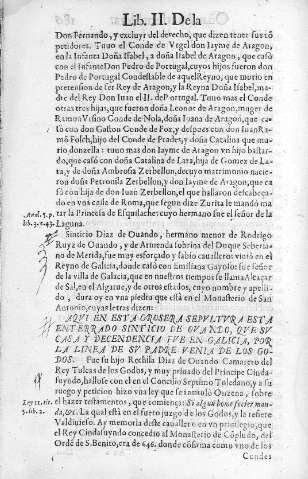 Lib. II. De la
Don Fernando, y excluyr del derecho, que dizen tener sus cō
petidores. Tuuo el Conde de Vrgel don Iayme de Aragon,
en la Infanta Doña Isabel, a doña Isabel de Aragon, que casó
con el Infante Don Pedro de Portugal, cuyos hijos fueron don
Pedro de Portugal Condestable de aquel Reyno, que murio en
pretension de ser Rey de Aragon, y la Reyna Doña Isabel, ma-
dre del Rey Don Iuan el II. de Portugal. Tuuo mas el Conde
otras tres hijas, que fueron doña Leonor de Aragon, muger de
Ramon Vrsino Conde de Nola, doña Iuana de Aragon, que ca-
só con don Gaston Conde de Fox, y despues con don Iuan Ra-
mō Folch, hijo del Conde de Prades, y doña Catalina que mu-
rio donzella: tuuo mas don Iayme de Aragon vn hijo bastar-
do, que casó con doña Catalina de Lara, hija de Gomez de La-
ra, y de doña Ambrosia Zerbellon, de cuyo matrimonio nacie-
ron doña Petronila Zerbellon, y don Iayme de Aragon, que ca
só con hija de don Iuan Zerbellon, el que hallaron degollado
en vna calle de Roma, que segun dize Zurita le mandó ma
tar la Princesa de Esquilache: cuyo hermano fue el señor de la
Laguna.
Anal. 5. p.
lib. 3. c. 43.
Sinticio Diaz de Ouando, hermano menor de Rodrigo
Ruyz de Ouando, y de Armenda sobrina del Duque
de Merida, fue muy esforçado, y fabio cauallero viuió en el
Reyno de Galicia, donde casó con Emiliana Gayoso fue señor
de la villa de Galacia, que en nuestros tiempos se llama Alcaçar
de Sal, en el Algarue, y de otros estados, cuyo nombre y apelli-
do, dura oy en vna piedra que està en el Monasterio de San
Antonio, cuyas letras dizen:
AQVI EN ESTA GROSERA SEPVLTVRA ESTA
ENTERRADO SINTICIO DE OVANDO, QVE SV
CASA Y DECENDENCIA FVE EN GALICIA, POR
LA LINEA DE SV PADRE VENIA DE LOS GO-
DOS. Fue su hijo Rechila Diaz de Ouando Camarero del
Rey Tulcas de los Godos, y muy priuado del Principe Cinda-
suyndo, hallose con el en el Concilio Septimo Toledano, y a su
ruego y peticion hizo vna ley que se intituló Onzeno, sobre
el hazer testamentos, que comiença: Si algun bene fecier man-
da, &c. La qual està en el fuero juzgo de los Godos, y le refiere
Valdiuieso. Ay memoria deste cauallero en vn priuilegio, que
el Rey Cindasuyndo concedio al Monasterio de Cōpludo, del
Ordē de S. Benito, era de 646. donde cōfirma como vno de los
Condes
Ley 11. tit.
5. lib. 2.